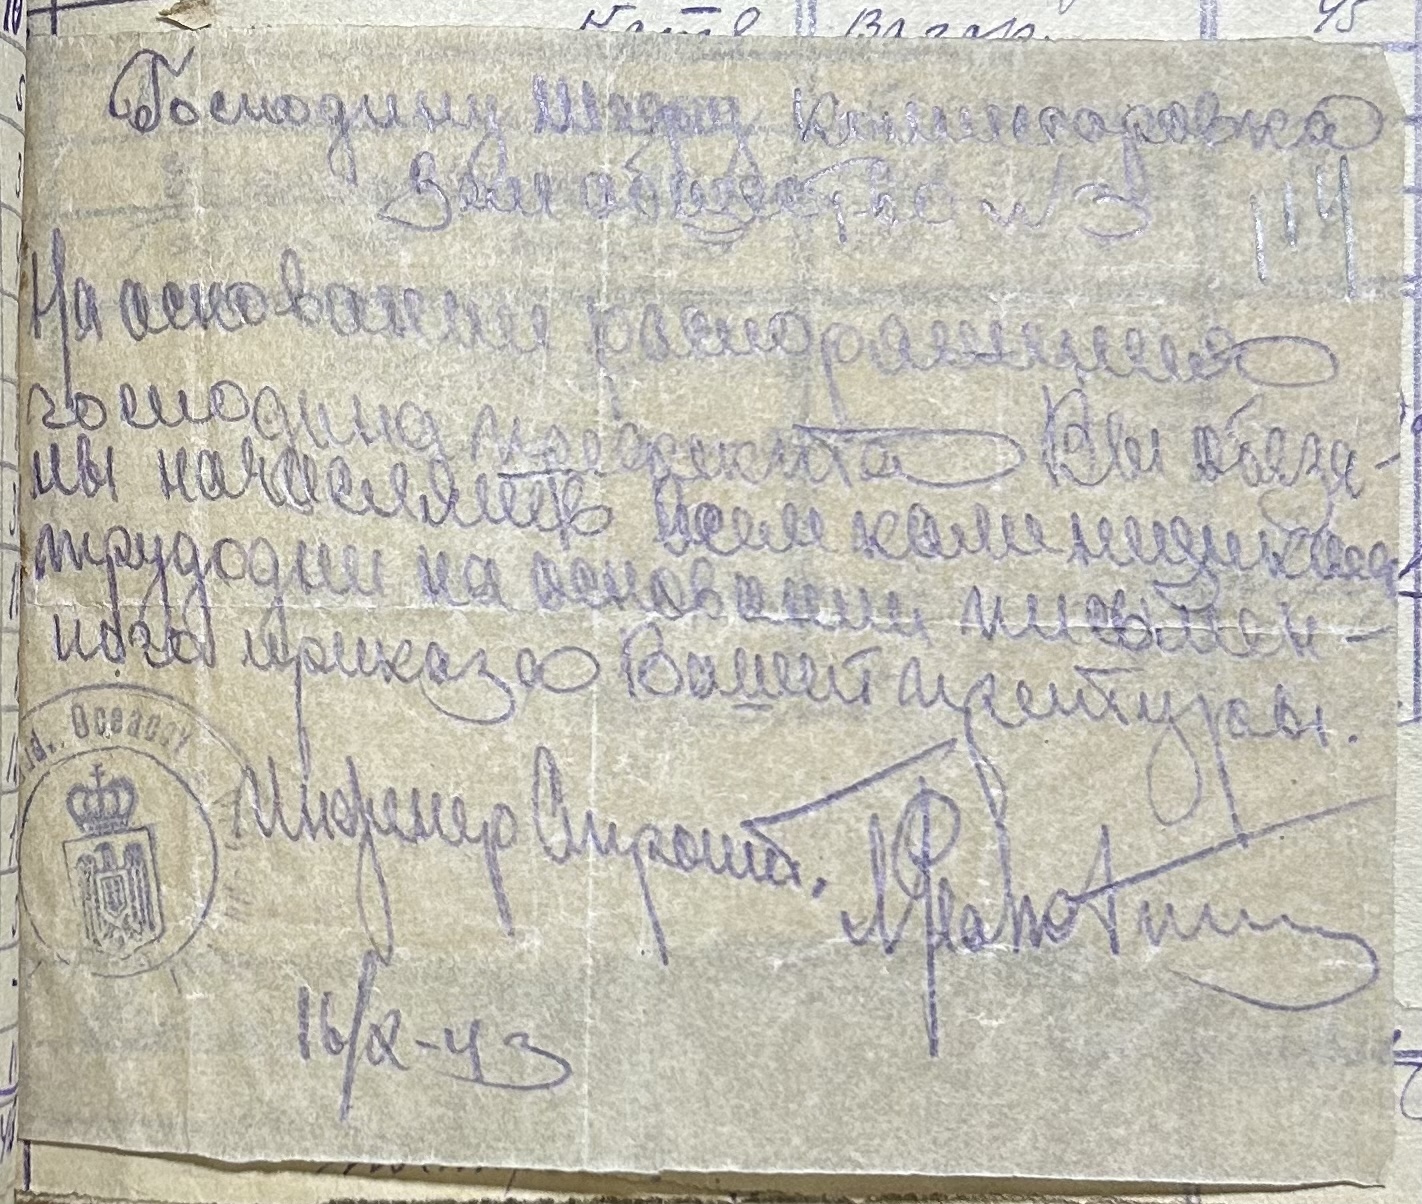 Господину Шефу Коминтаровка
Землобщество № 3
114
На основании распоряжения
господина префекта Вы обяза-
ны начислять всем каменщикам
трудодни на основании письмен-
ного приказа Вашей претуры.
Инженер Сирота.
16/X-43